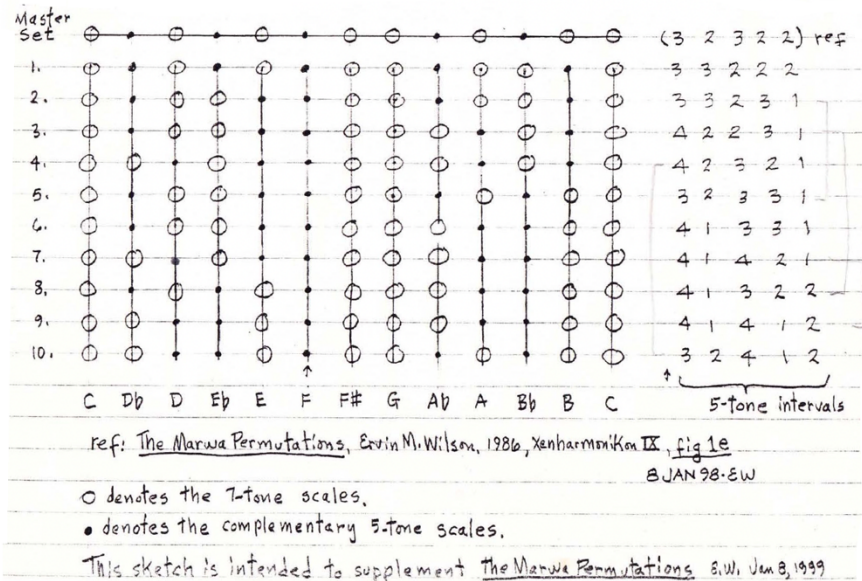 Master
Set (3 2 3 2 2) ref
1. 3 3 2 2 2
2. 3 3 2 3 1
3. 4 2 2 3 1
4. 4 2 3 2 1
5. 3 2 3 3 1
6. 4 1 3 3 1
7. 4 1 4 2 1
8. 4 1 3 2 2
9. 4 1 4 1 2
10. 3 2 4 1 2
C Db D Eb E F F# G Ab A Bb B C 5-tone intervals
ref: The Marwa Permutations, Ervin M. Wilson, 1986, Xenharmonikon IX, fig 1e
8 JAN 98·EW
O denotes the 7-tone scales.
• denotes the complementary 5-tone scales.
This sketch is intended to supplement The Marwa Permutations E.W. Jan 8, 1999